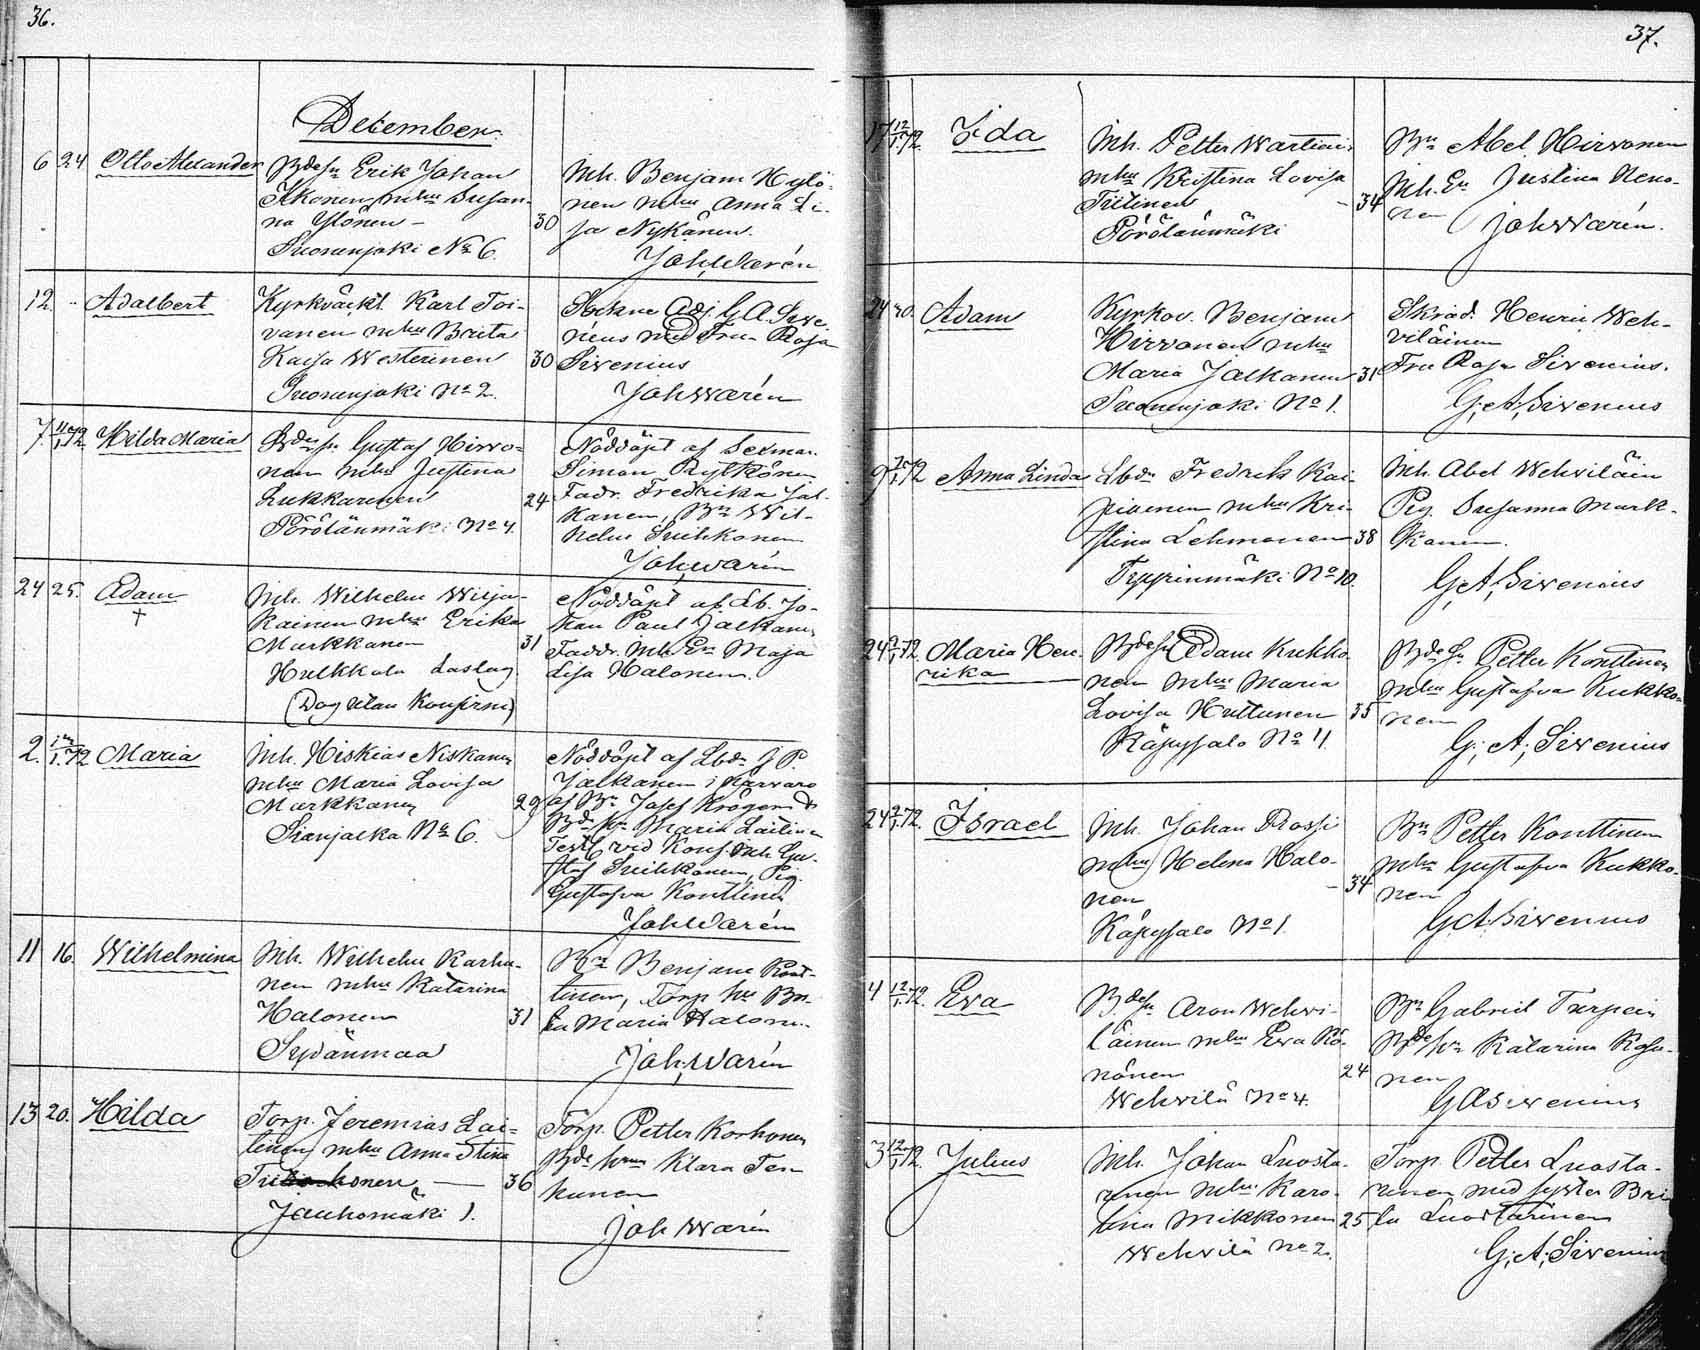 36.
December.
6 24 Otto Alexander Bdesn Erik Johan
Ikonen mhu Susan-
na Ylönen - 30
Suonenjoki No 6.
Inh. Benjam Hylö-
nen mhu Anna Li-
sa Nykänen.
Joh. Warén
12 .. Adalbert Kyrkväkt. Karl Toi-
vanen mhu Brita
Kaisa Westerinen 30
Suonenjoki No 2.
Sockne Adj. G. A. Sive-
nius med Fru Rosa
Sivenius
Joh Warén
7 1/1.72 Hilda Maria Bdesn Gustaf Hirvo-
nen mhu Justina
Lukkarinen 24
Pörölänmäki No 4.
Nöddöpt af Sexman
Simon Rytkönen
Fadr. Fredrika Jal-
kanen, Bn Wil-
helm Suihkonen
Joh. Warén
24 25. Adam † Inh. Wilhelm Wilja-
kainen mhu Erika
Markkanen 31
Hulkkola Lastag
(Dog utan Konfirm)
Nöddöpt af Lb. Jo-
han Paul Jalkanen
Faddr. Inh. En Maja
Lisa Halonen.
2. 1.72 Maria Inh. Hiskias Niskanen
mhu Maria Lovisa
Markkanen 29
Sianjalka No 6.
Nöddöpt af Lbdn J. P.
Jalkanen i närvaro
af Bn Josef Kröger &
Bdehu Maria Laitinen
Test. vid Konf. Inh. Gu-
staf Suihkonen, Pig.
Gustafva Konttinen
Joh Warén
11 16. Wilhelmina Inh. Wilhelm Karhu-
nen mhu Katarina
Halonen 31
Sydänmaa
Bn Benjam Kont-
tinen, Torp hu Bri-
ta Maria Halonen
Joh. Warén
13 20. Hilda Torp. Jeremias Lai-
tinen mhu Anna Stina
36
Jauhomäki 1.
Torp. Petter Korhonen
Bde hrun Klara Ten-
hunen
Joh Warén
37.
17 12/1.72. Ida Inh. Petter Wartiain
mhu Kristina Lovisa
Tiitinen - 34
Pörölänmäki
Bn Abel Hirvonen
Inh. En Justina Neno-
nen
Joh Warén.
24 30. Adam Kyrkov. Benjam
Hirvonen mhu
Maria Jalkanen 31
Suonenjoki No 1.
Skräd. Henrik Weh-
viläinen
Fru Rosa Sivenius.
G. A. Sivenius
9 7/1.72 Anna Linda Lbdn Fredrik Kai-
painen mhu Kri-
stina Lehmonen 38
Tyyrinmäki No 10.
Inh. Abel Wehviläin
Pig. Susanna Mark-
kanen.
G. A. Sivenius
24 2/1.72. Maria Hen-
rika Bdesn Adam Kukko-
nen mhu Maria
Lovisa Huttunen 35
Käpysalo No 11.
Bdesn Petter Konttinen
mhu Gustafva Kukko-
nen
G. A. Sivenius
24 2/1.72. Israel Inh. Johan Rossi
mhu Helena Halo-
nen - 34
Käpysalo No 1.
Bn Petter Konttinen
mhu Gustafva Kukko-
nen
G. A. Sivenius
4 12/1.72. Eva Bdesn Aron Wehvi-
läinen mhu Eva Rö-
nönen 24
Wehvilä No 4.
Bn Gabriel Turpein
Bdehu Katarina Kosu-
nen
G A Sivenius
3 12/1.72. Julius Inh. Johan Luosta-
rinen mhu Karo-
lina Mikkonen 25
Wehvilä No 2.
Torp. Petter Luosta-
rinen med syster Bri-
ta Luostarinen
G. A. Sivenius